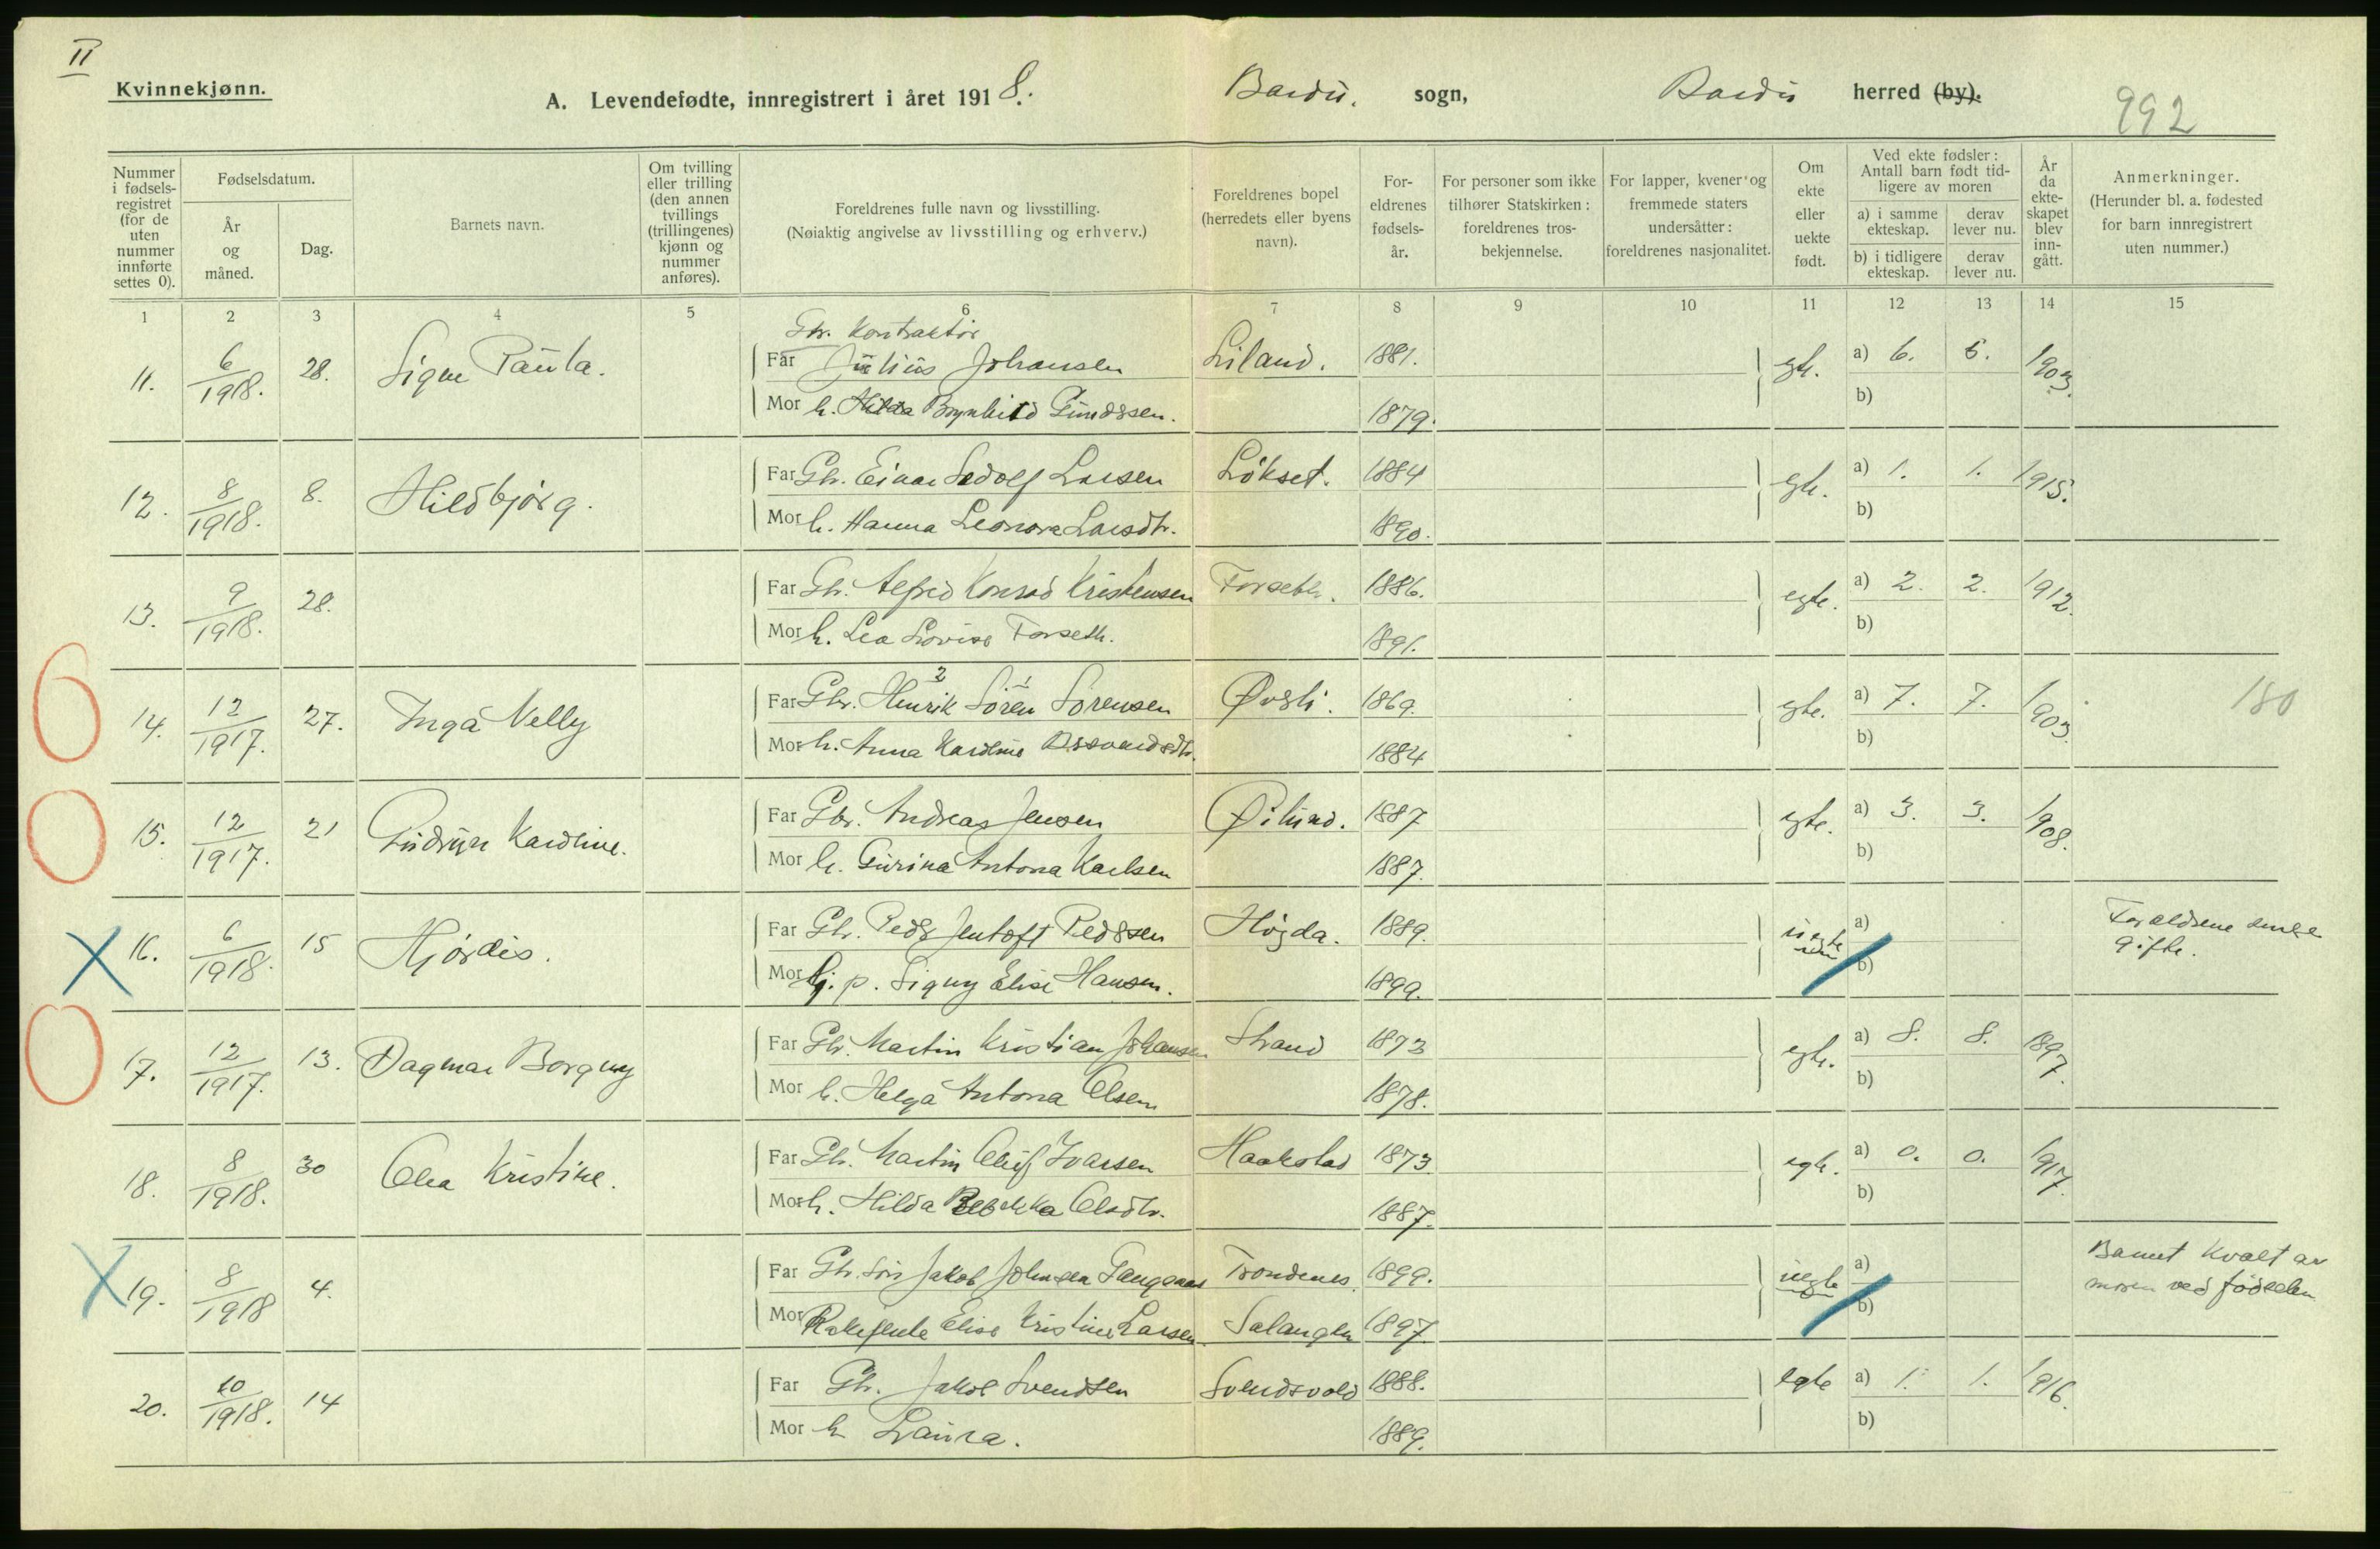 II
Kvinnekjønn.
A. Levendefødte, innregistrert i året 1918. Bardu. sogn, Bardu herred (by).
992
Nummer i fødselsregistret (for de uten nummer innførte settes 0).
Fødselsdatum.
År og måned.
Dag.
Barnets navn.
Om tvilling eller trilling (den annen tvillings (trillingenes) kjønn og nummer anføres).
Foreldrenes fulle navn og livsstilling.
(Nøiaktig angivelse av livsstilling og erhverv.)
Foreldrenes bopel (herredets eller byens navn).
Foreldrenes fødselsår.
For personer som ikke tilhører Statskirken: foreldrenes trosbekjennelse.
For lapper, kvener og fremmede staters undersåtter: foreldrenes nasjonalitet.
Om ekte eller uekte født.
Ved ekte fødsler: Antall barn født tidligere av moren
a) i samme ekteskap. derav lever nu.
b) i tidligere ekteskap. derav lever nu.
År da ekteskapet blev inngått.
Anmerkninger.
(Herunder bl. a. fødested for barn innregistrert uten nummer.)
1 2 3 4 5 6 7 8 9 10 11 12 13 14 15
Gbr. Kontraktør
11. 6/1918. 28. Signe Paula. Far Julius Johansen Liland. 1881. egte. a) 6. 5. 1903.
Mor h. Hilda Brynhild Gundersen. 1879. b)
12. 8/1918. 8. Hildbjørg. Far Gbr. Einar Sedolf Larsen Løkset. 1884 egte. a) 1. 1. 1915.
Mor h. Hanna Leonora Larsdtr. 1890. b)
13. 9/1918. 28. Far Gbr. Alfred Konrad Kristensen Forseth. 1886. egte. a) 2. 2. 1912.
Mor h. Lea Lovise Forseth. 1891. b)
2 1
14. 12/1917. 27. Inga Nelly Far Gbr. Henrik Søren Sørensen Øvsli. 1869. egte. a) 7. 7. 1903. 180
Mor h. Anna Karoline 1884 b)
15. 12/1917. 21 Gudrun Karoline. Far Gbr. Andreas Jensen Øilund. 1887 egte. a) 3. 3. 1908.
Mor h. Gurina Antona Karlsen 1887. b)
16. 6/1918. 15 Hjørdis. Far Gbr. Peder Jentoft Pedersen Høgda. 1889. uegte a) Forældrene senere
gifte.
Mor tj. p. Signy Elise Hansen. 1899. b)
17. 12/1917. 13. Dagmar Borgny Far Gbr. Martin Kristian Johansen Strand 1873 egte. a) 8. 8. 1897.
Mor h. Helga Antona Olsen 1878. b)
18. 8/1918. 30 Olea Kristine. Far Gbr. Martin Oluf Ivarsen Haakstad 1873. egte. a) 0. 0. 1917.
Mor h. Hilda Rebekka Olsdtr. 1887. b)
19. 8/1918 4. Far Gbr. søn Jakob Johnsen Trondenes. 1899. uegte a) Barnet kvalt av
moren ved fødselen.
Mor Elise Kristine Larsen Salangen 1897. b)
20. 10/1918. 14 Far Gbr. Jakob Svendsen Svendsvold 1888. egte a) 1. 1. 1916.
Mor h Laura. 1889. b)